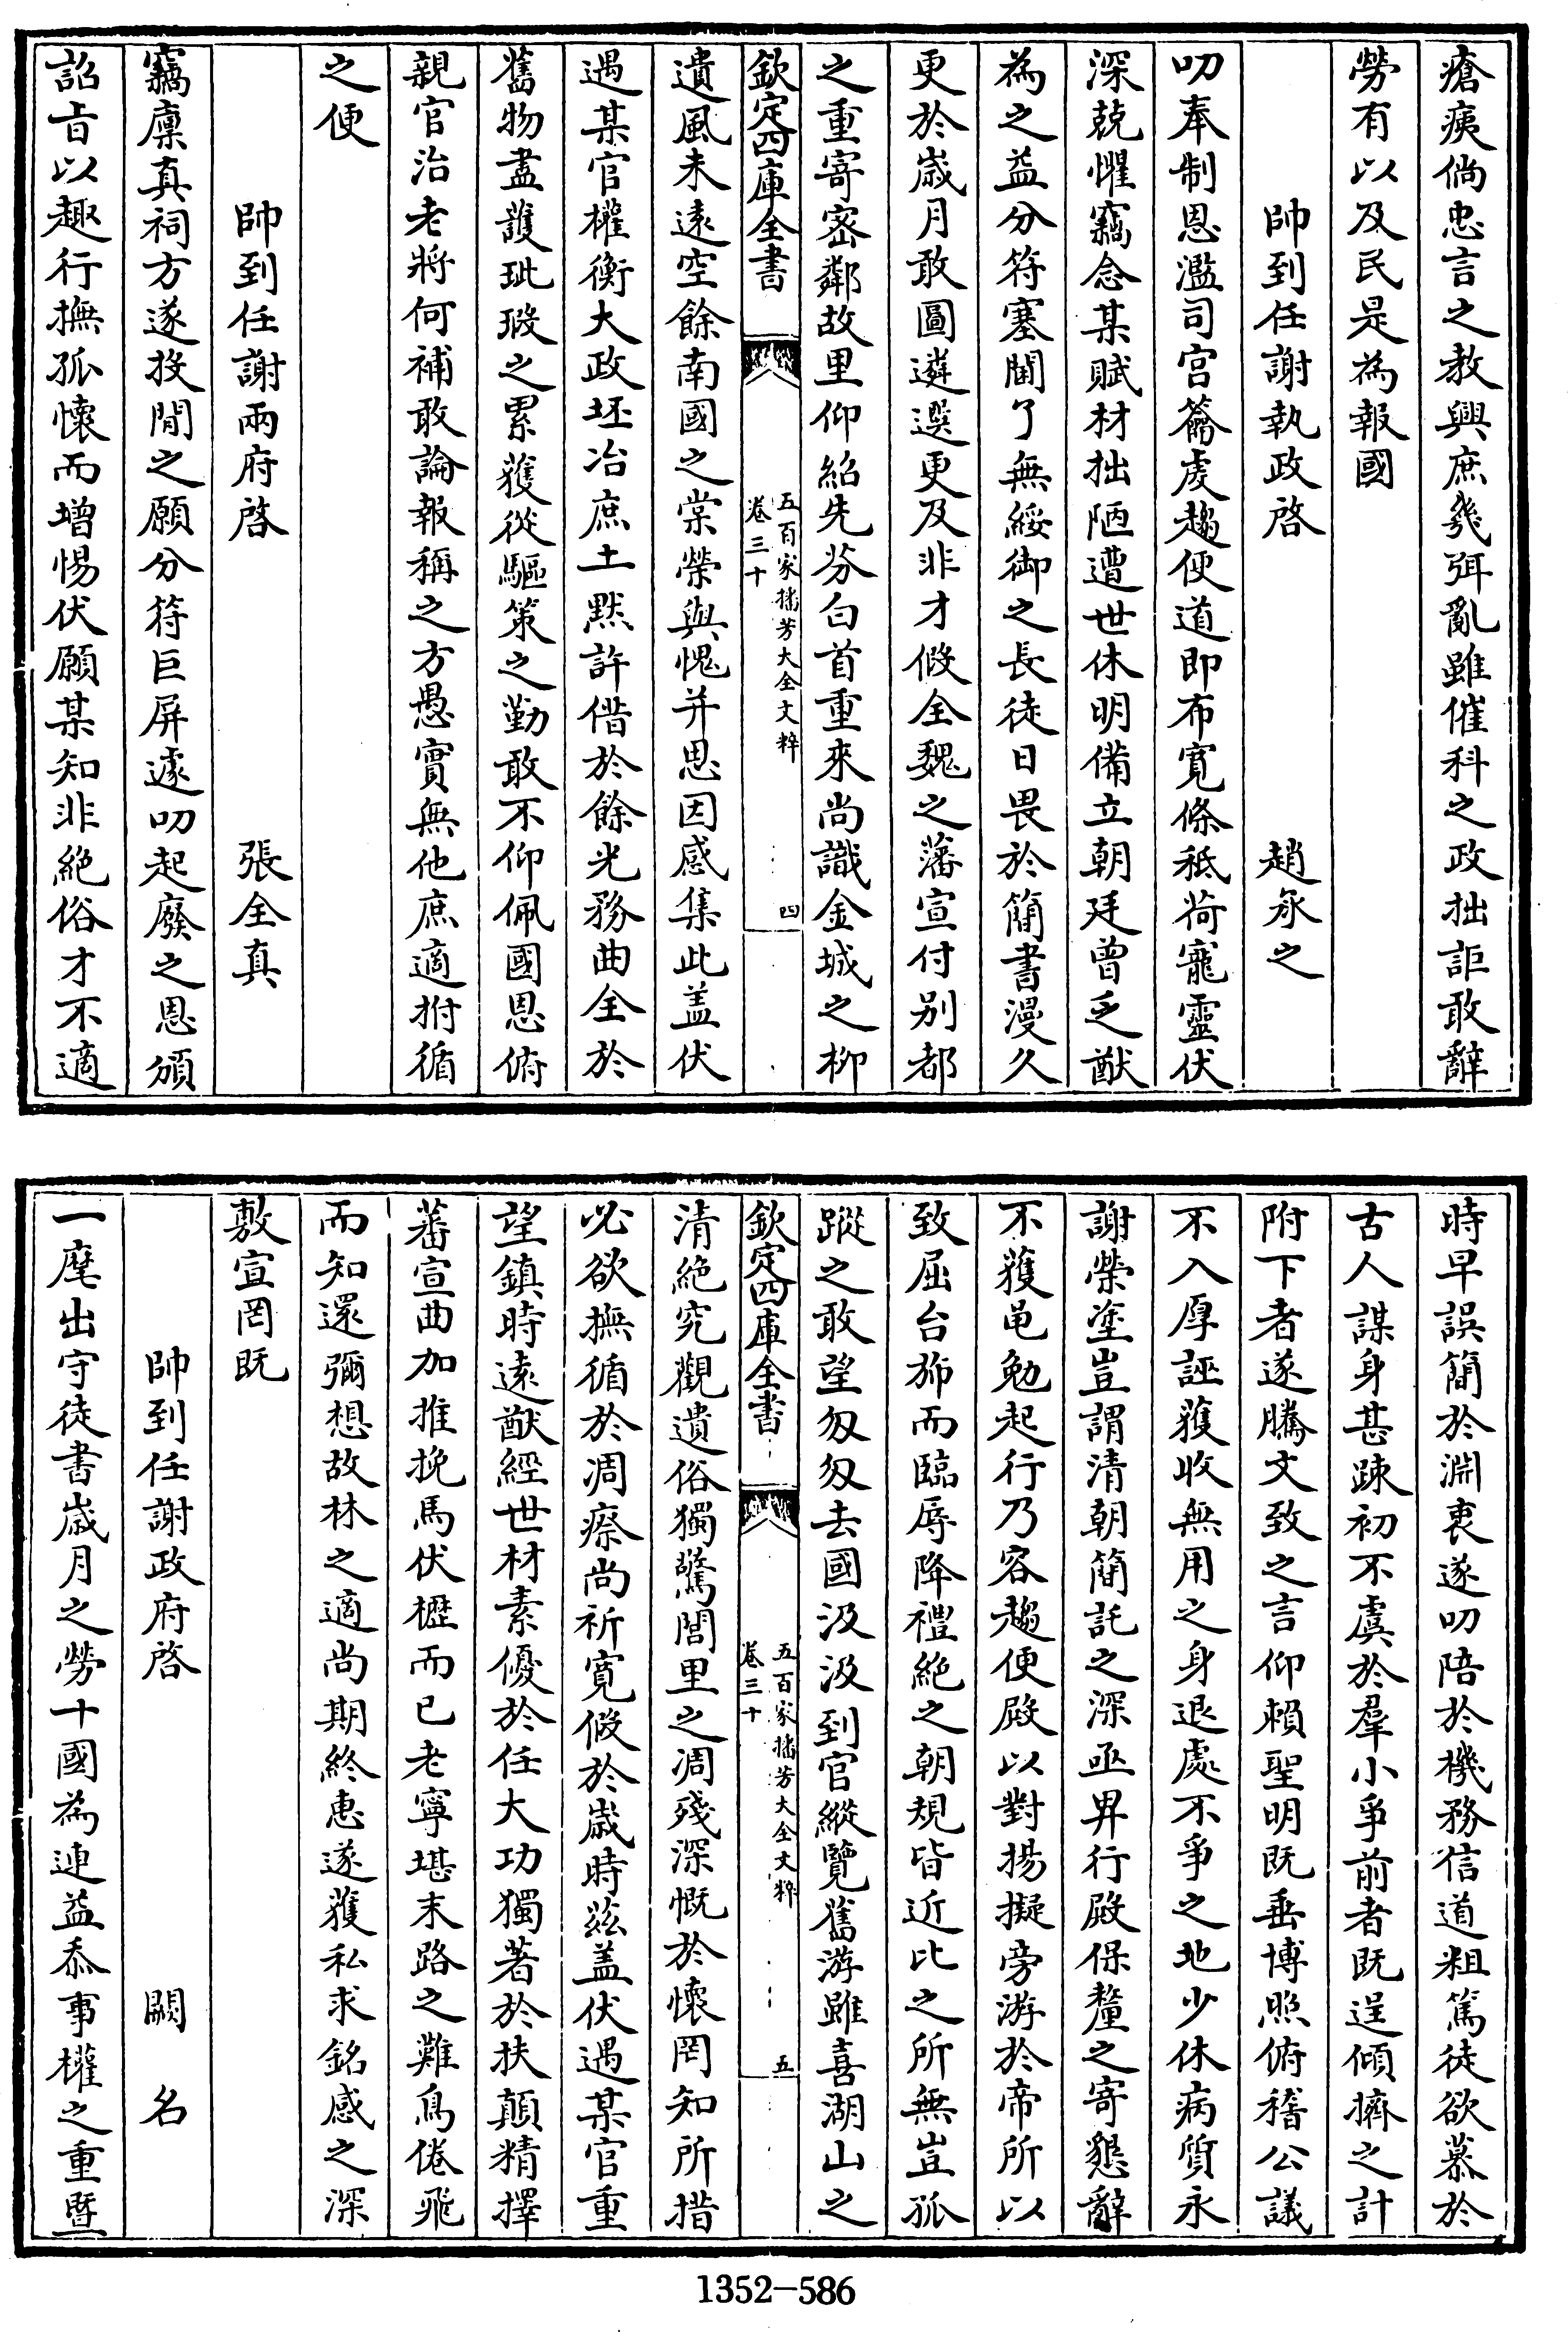 瘡痍倘忠言之教興庶幾弭亂雖催科之政拙詎敢辭
勞有以及民是為報國
帥到任謝執政啓　趙承之
叨奉制恩濫司宫籥虔趨便道即布寛條秪荷寵靈伏
深兢懼竊念某賦材拙陋遭世休明備立朝廷曾乏猷
為之益分符塞閫了無綏御之長徒日畏於簡書漫久
更於歲月敢圖遴選更及非才假全魏之藩宣付别都
之重寄宻鄰故里仰紹先芬白首重來尚識金城之柳
欽定四庫全書
五百家播芳大全文粹
卷三十
四
遺風未遠空餘南國之棠榮與愧并恩因感集此盖伏
遇某官權衡大政坯冶庶土黙許借於餘光務曲全於
舊物盡護玼瑕之累獲從驅策之勤敢不仰佩國恩俯
親官治老將何補敢論報稱之方愚實無他庶適拊循
之便
帥到任謝兩府啓　張全真
竊廩真祠方遂投閒之願分符巨屏遽叨起廢之恩頒
詔㫖以趣行撫孤懷而增惕伏願某知非絶俗才不適
時早誤簡於淵衷遂叨陪於機務信道粗篤徒欲慕於
古人謀身甚疎初不虞於羣小爭前者既逞傾擠之計
附下者遂騰文致之言仰賴聖明既垂博照俯稽公議
不入厚誣獲收無用之身退處不爭之地少休病質永
謝榮塗豈謂清朝簡託之深亟畀行殿保釐之寄懇辭
不獲黽勉起行乃容趨便殿以對揚擬旁游於帝所以
致屈台斾而臨辱降禮絶之朝規皆近比之所無豈孤
蹤之敢望匆匆去國汲汲到官縱覽舊游雖喜湖山之
欽定四庫全書
五百家播芳大全文粹
卷三十
五
清絶究觀遺俗獨驚閭里之凋殘深慨於懷罔知所措
必欲撫循於凋瘵尚祈寛假於歲時兹盖伏遇某官重
望鎮時逺猷經世材素優於任大功獨著於扶顛精擇
蕃宣曲加推挽馬伏櫪而已老寧堪末路之難鳥倦飛
而知還彌想故林之適尚期終惠遂獲私求銘感之深
敷宣罔既
帥到任謝政府啓　闕名
一麾出守徒書歲月之勞十國為連益忝事權之重暨
1352-586